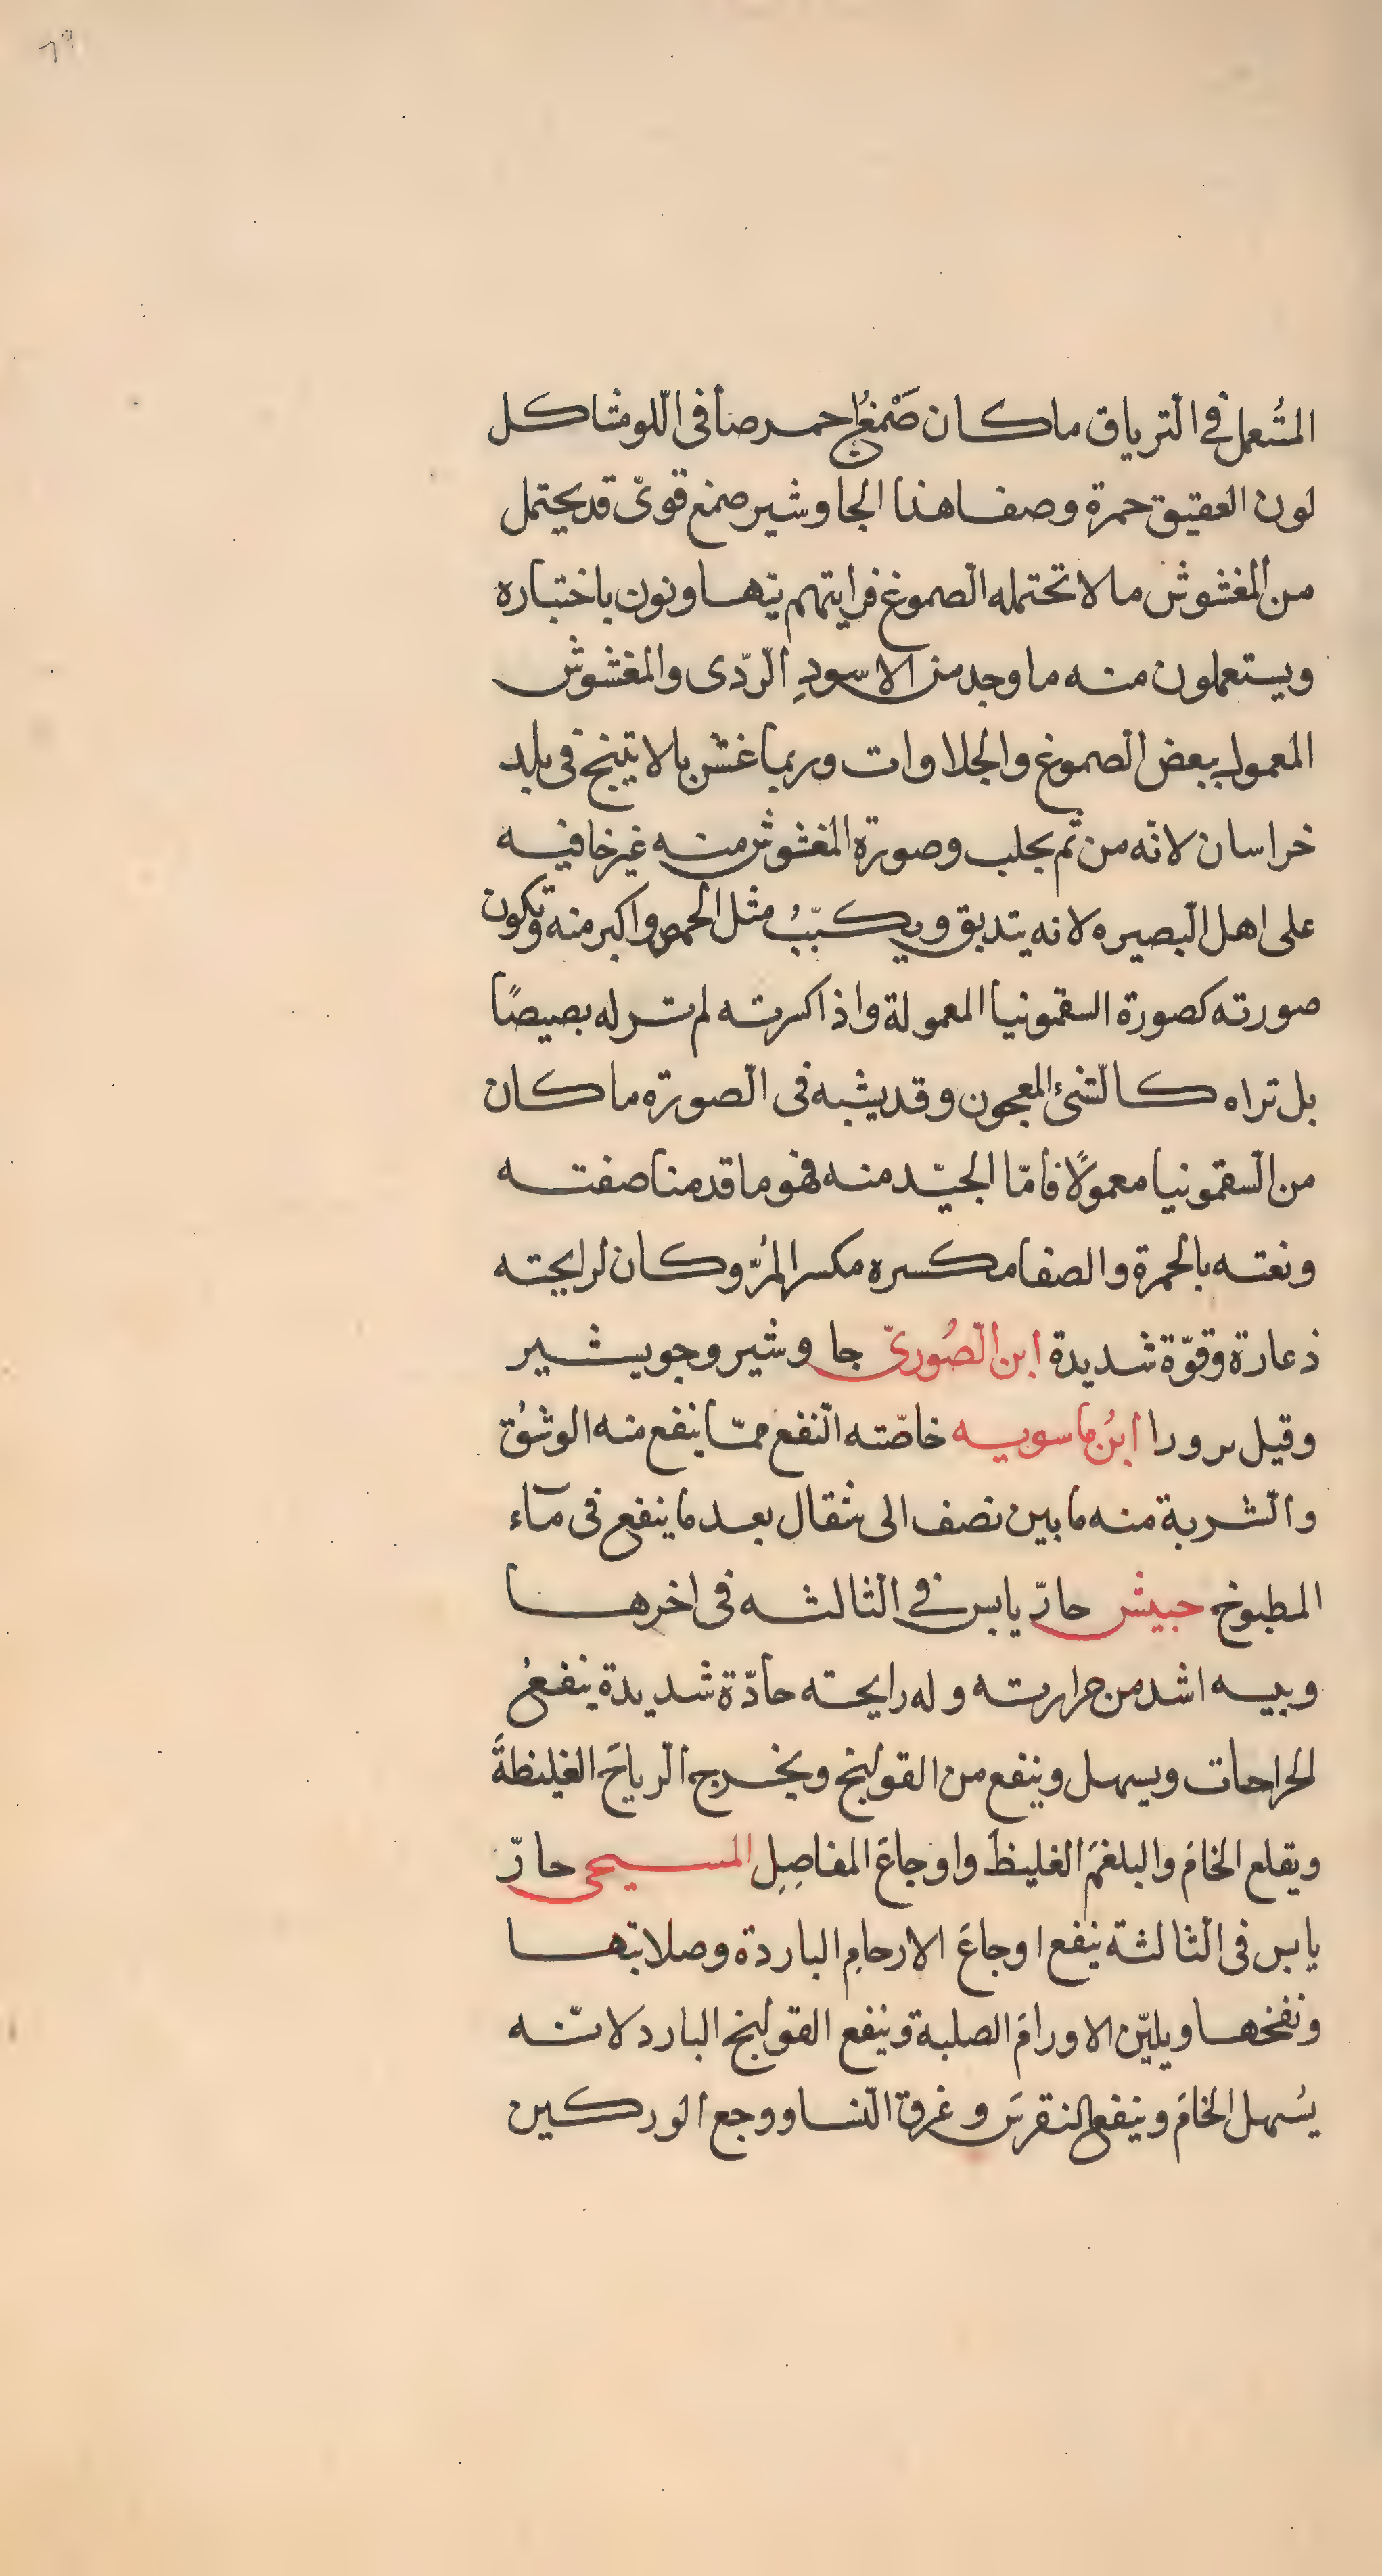 المشعمل في الترياق ما كان صَمْغُ احمر صافى اللو مشاكل
لون العقيق حمرة وصفا هذا الجاوشير صمغ قوىّ قد يحتمل
من المغشوش ما لا تحتمله الصموغ فرايتهم يتهاونون باختباره
ويستعملون منه ما وجد من الاسودِ الرّدى والمغشوش
المعمول ببعض الصموغ والجلاوات وربما غش بالاتينج فى بلد
خراسان لانّه من ثم يجلب وصورة المغشوش منه غير خافيه
على اهل البصيره لانه يتدبق ويكبّبُ مثل الحمص واكبر منه وتكون
صورته كصورة السقمونيا المعمولة واذا كسرته لم تر له بصيصًا
بل تراه كالشئ المعجون وقد يشبه فى الصورة ما كان
من السقمونيا معمولًا فامّا الجيّد منه فهو ما قدمنا صفته
ونعته بالحمرة والصفا مكسره مكسر المُرّ وكان لرايحته
ذعارة وقوّة شديدة ابن الصُورىّ جاوشير وجويشير
وقيل برورا ابنُ ماسويه خاصّته النفع ممّا ينفع منه الوشُق
والشربة منه ما بين نصف الى مثقال بعد ما ينفع فى مآء
المطبوخ حبيش حارّ يابس في الثالثه فى اخرها
ويبسه اشد من حرارته وله رايحته حادّة شديدة ينفعُ
الجراحات ويسهل وينفع من القولنج ويخرج الرياحَ الغليظةَ
ويقلع الخامَ والبلغمَ الغليظَ واوجاعَ المفاصِلِ المسيحى حارّ
يابس فى الثالثة ينفع اوجاعَ الارحامِ الباردة وصلابتها
ونفخها ويليّن الاورامَ الصلبة وينفع القولنج البارد لانّه
يُسهل الخامَ وينفع النقرسَ وعرق النسا ووجع الوركين